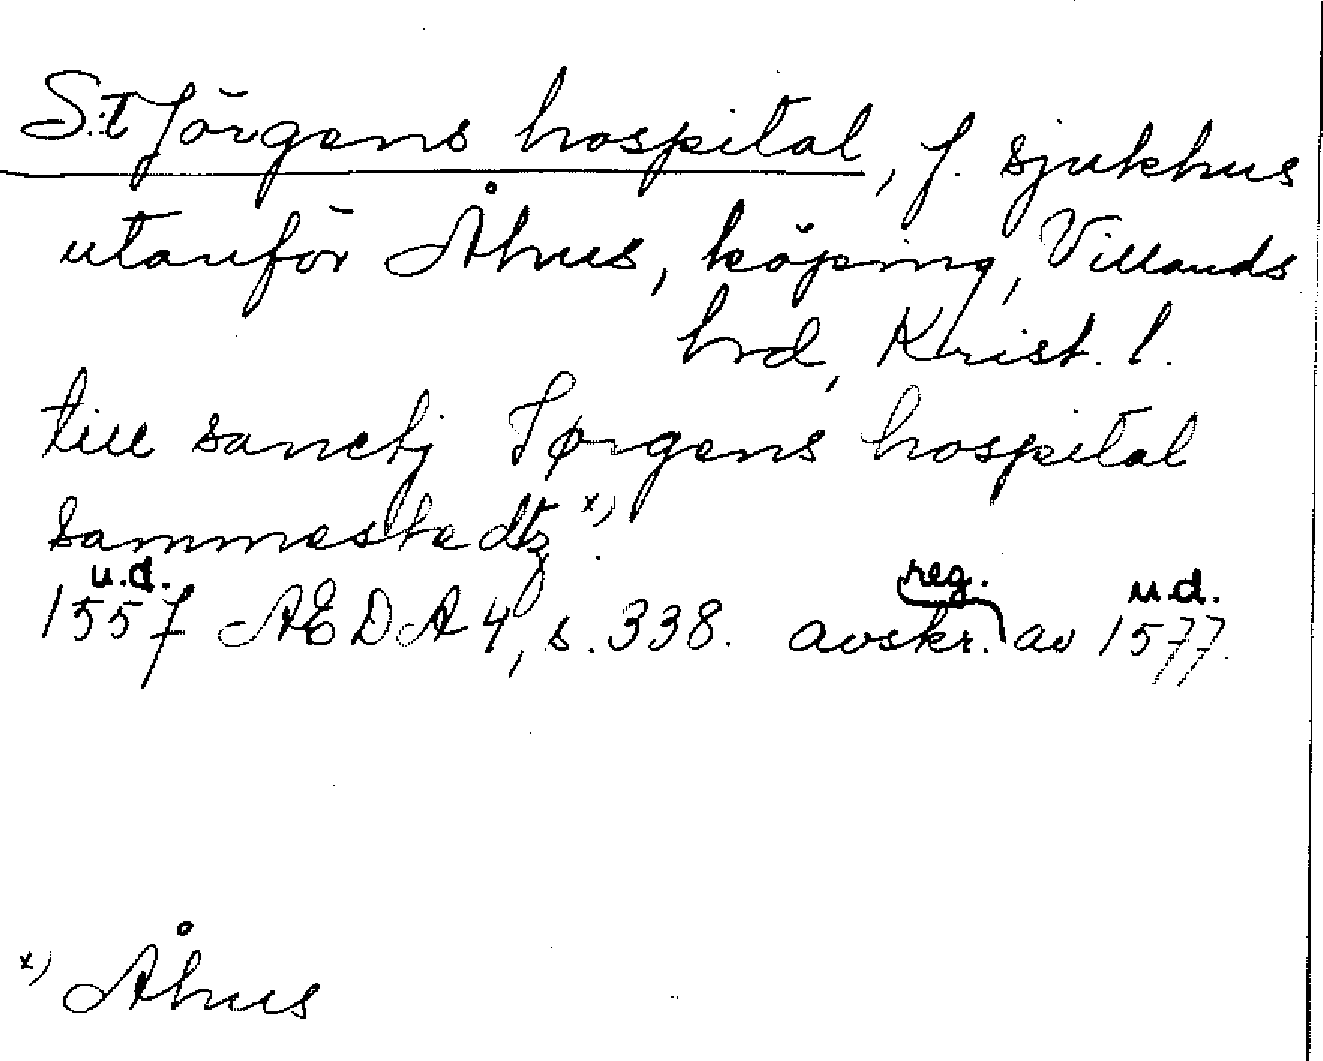 S:t Jörgens hospital, f. sjukhus
utanför Åhus, köping, Villands
hrd, Krist. l.
till sanctj Jørgens hospital
sammestedtz x)
u.d. reg. u.d.
1557 AEDA 4, s. 338. avskr. av 1577.
x) Åhus